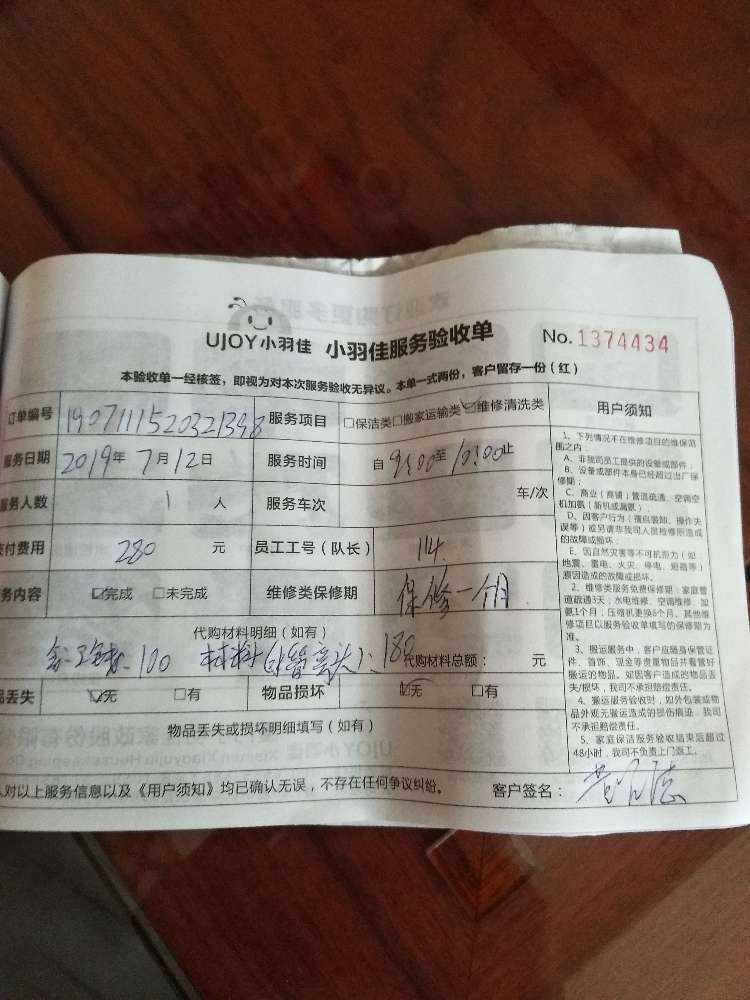 UJOY小羽佳 小羽佳服务验收单 No. 1374434
本验收单一经核签，即视为对本次服务验收无异议。本单一式两份，客户留存一份（红）
订单编号 190711152032139 服务项目 □保洁类□搬家运输类☑维修清洗类 用户须知
服务日期 2019年7月12日 服务时间 自9:00至10:00止
服务人数 1 人 服务车次 车/次
支付费用 280 元 员工工号（队长） 114
务内容 ☑完成 □未完成 维修类保修期 保修一个月
代购材料明细（如有）
100 材料 180 代购材料总额： 元
品丢失 ☑无 □有 物品损坏 ☑无 □有
物品丢失或损坏明细填写（如有）
人对以上服务信息以及《用户须知》均已确认无误，不存在任何争议纠纷。 客户签名：
1、下列情况不在维修项目的维保范
围之内：
A、非我司员工提供的设备或部件；
B、设备或部件本身已经超过出厂保
修期；
C、商业（商铺）管道疏通、空调空
机加氨（新机或漏氨）
D、因客户行为（擅自装卸、操作失
误等）或另请非我司人员检修所造成
的故障或损坏；
E、因自然灾害等不可抗拒力（如
地震、雷电、火灾、停电、短路等）
原因造成的故障或损坏。
2、维修类服务免费保修期：家庭管
道疏通3天；水电维修、空调维修、加
氨1个月；压缩机更换6个月，其他维
修项目以服务验收单填写的保修期为
准。
3、搬运服务中，客户应随身保管证
件、首饰、现金等贵重物品并看管好
搬运的物品。如因客户造成的物品丢
失/损坏，我司不承担赔偿责任。
4、搬运服务验收时，如外包装或物
品外观无搬运造成的损伤痕迹，我司
不承担赔偿责任。
5、家庭保洁服务验收结束后超过
48小时，我司不负责上门返工。